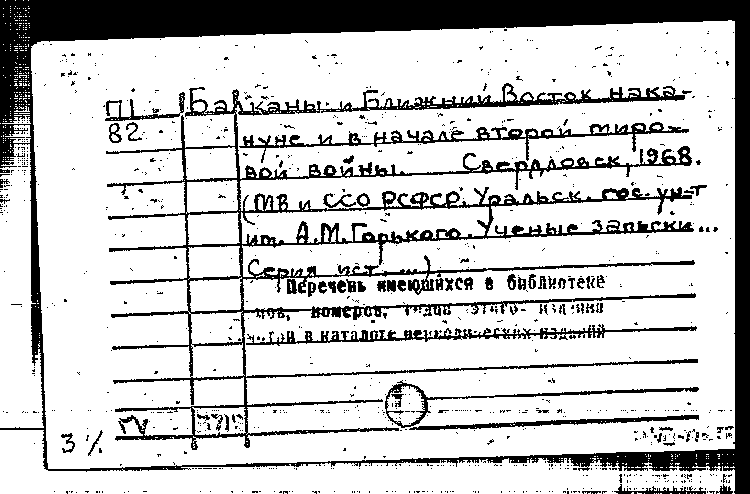 П1 Балканы и Ближний Восток нака-
82 нуне и в начале второй миро-
вой войны. Свердловск, 1968.
(МВ и ССО РСФСР. Уральск. гос. ун-т
им. А.М. Горького. Ученые записки...
Серия ист. ...)
Перечень имеющихся в библиотеке
мов, номеров, годов этого издания
смотри в каталоге периодических изданий
3 %